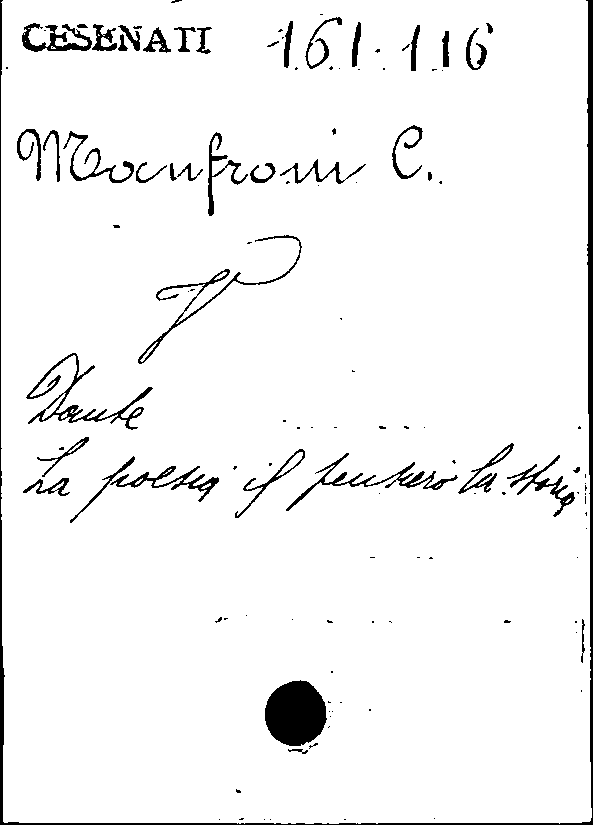 CESENATI 161.116
Manfroni C.
V
Dante
La poesia il pensiero la storia